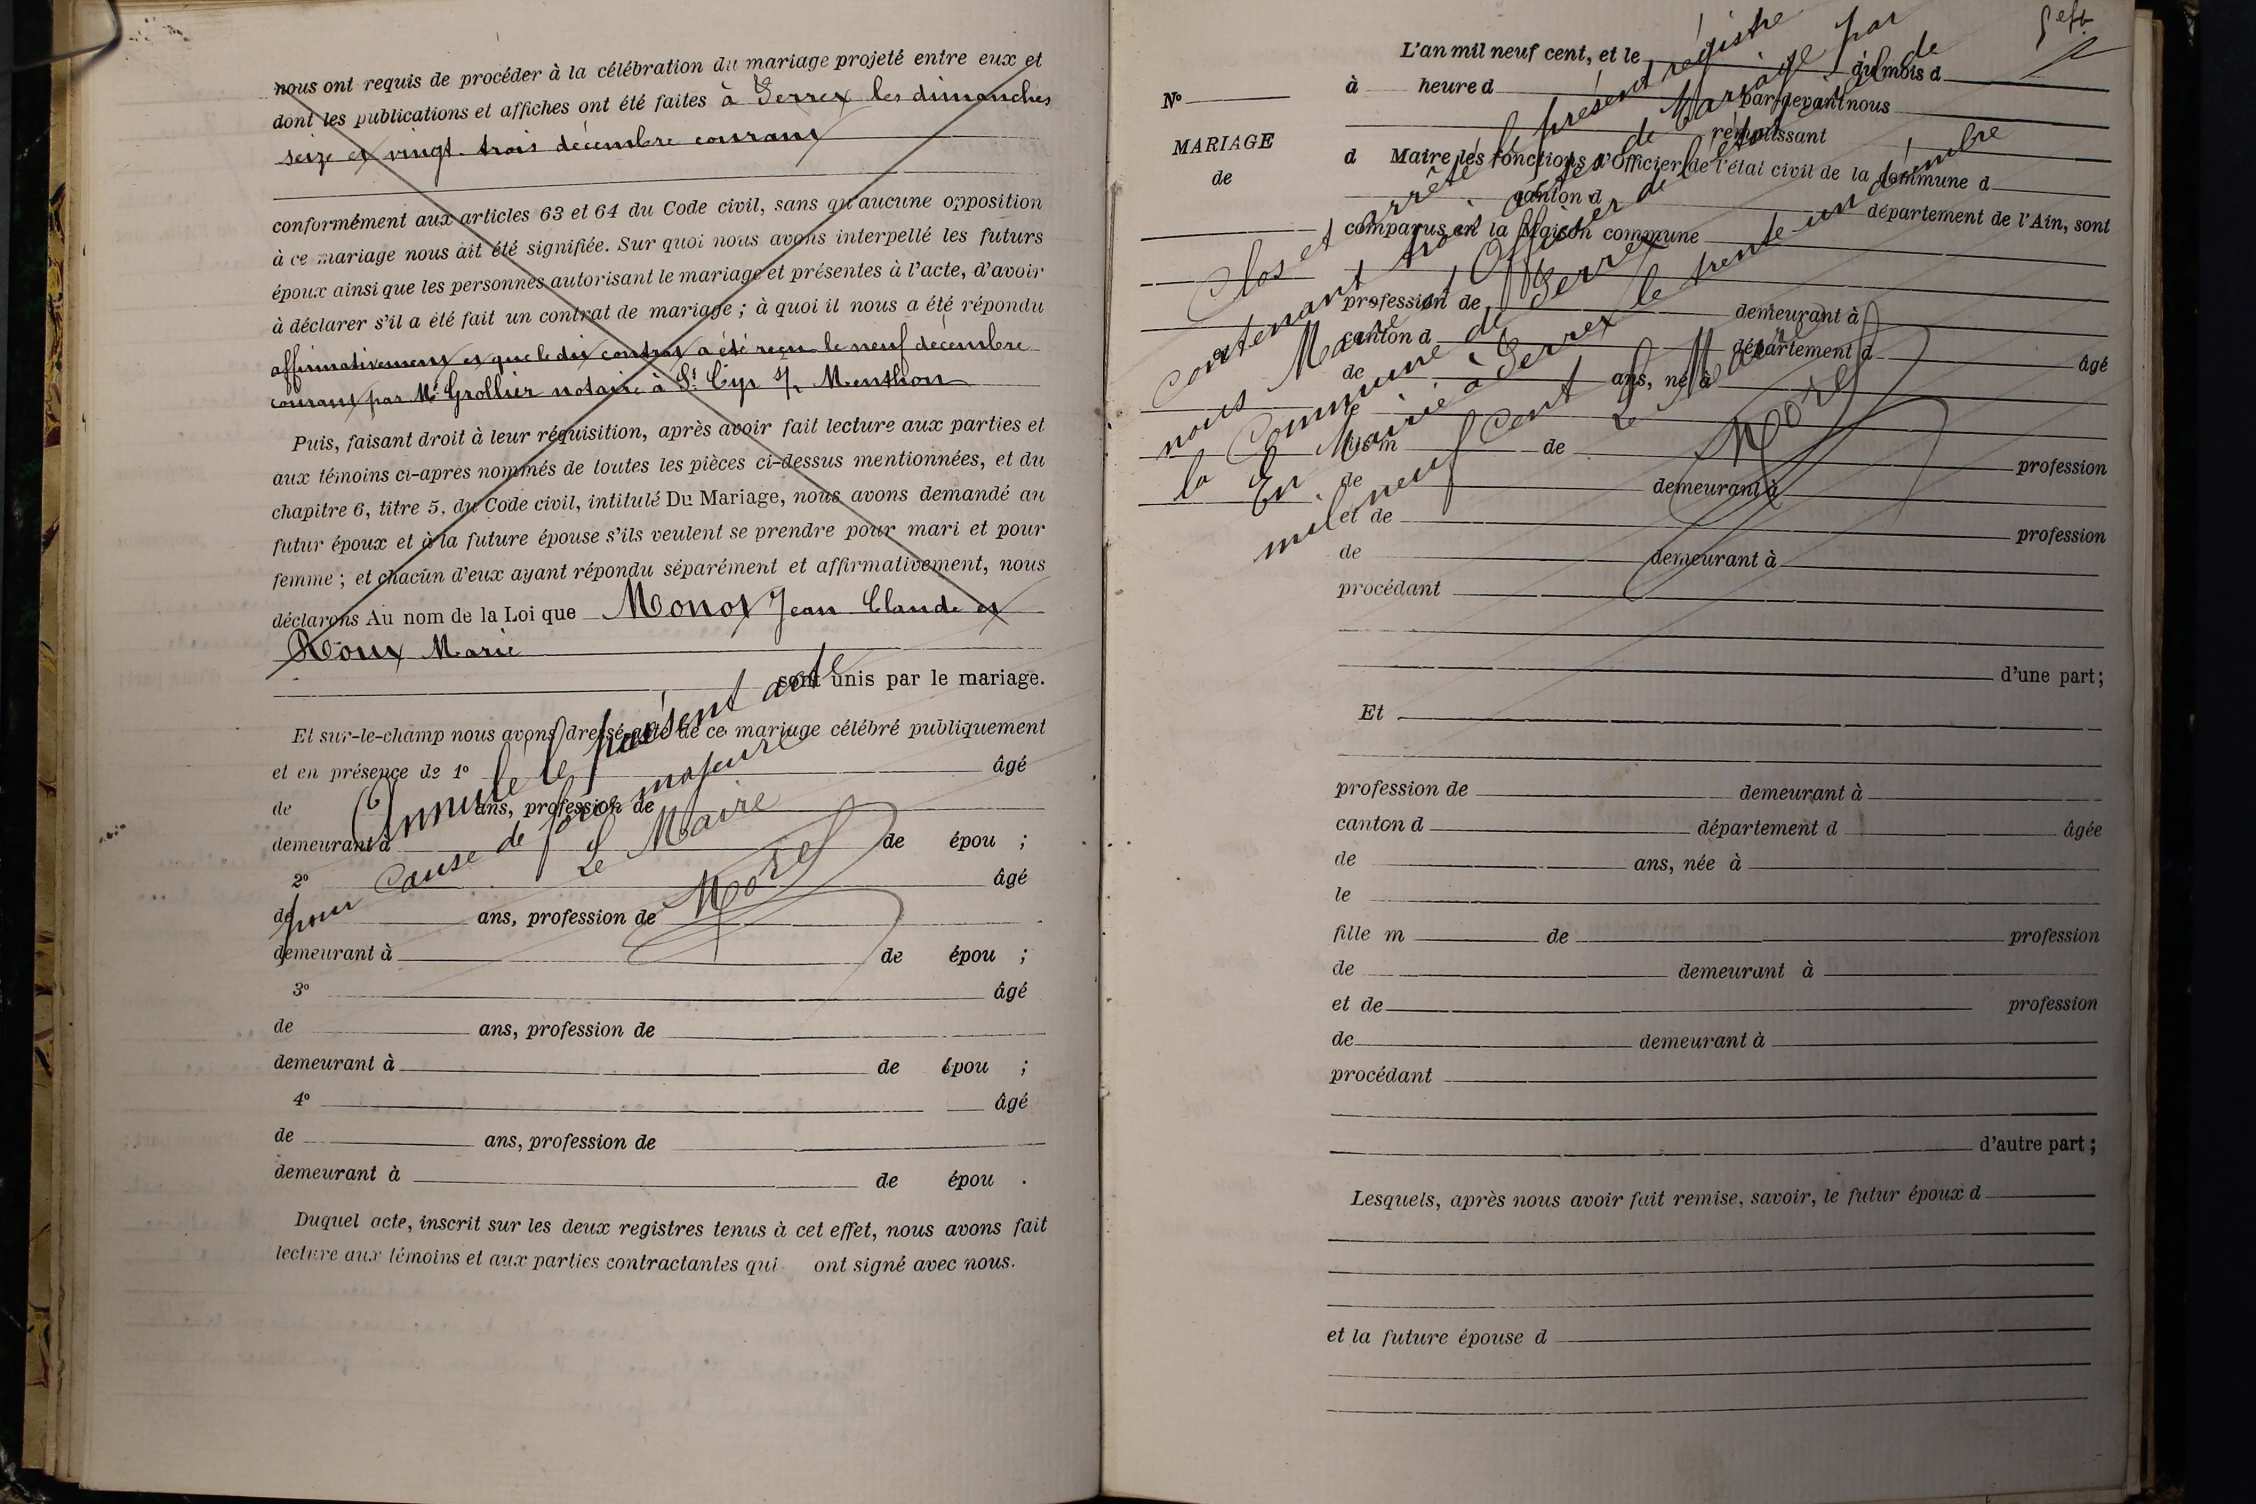 nous ont requis de procéder à la célébration du mariage projeté entre eux et
dont les publications et affiches ont été faites à Perrex les dimanches
seize et vingt-trois décembre courant
conformément aux articles 63 et 64 du Code civil, sans qu'aucune opposition
à ce mariage nous ait été signifiée. Sur quoi nous avons interpellé les futurs
époux ainsi que les personnes autorisant le mariage et présentes à l'acte, d'avoir
à déclarer s'il a été fait un contrat de mariage ; à quoi il nous a été répondu
affirmativement et que le dit contrat a été reçu le neuf décembre
courant par Me Grollier notaire à St Cyr s/ Menthon
Puis, faisant droit à leur réquisition, après avoir fait lecture aux parties et
aux témoins ci-après nommés de toutes les pièces ci-dessus mentionnées, et du
chapitre 6, titre 5, du Code civil, intitulé Du Mariage, nous avons demandé au
futur époux et à la future épouse s'ils veulent se prendre pour mari et pour
femme ; et chacun d'eux ayant répondu séparément et affirmativement, nous
déclarons Au nom de la Loi que Monot Jean Claude et
Roux Marie
sont unis par le mariage.
Et sur-le-champ nous avons dressé acte de ce mariage célébré publiquement
et en présence de 1o âgé
de ans, profession de
demeurant à de épou ;
2o âgé
de ans, profession de
demeurant à de épou ;
3o âgé
de ans, profession de
demeurant à de épou ;
4o âgé
de ans, profession de
demeurant à de épou .
Duquel acte, inscrit sur les deux registres tenus à cet effet, nous avons fait
lecture aux témoins et aux parties contractantes qui ont signé avec nous.
Annulé le présent acte
pour cause de force majeure
Le Maire
Morel
L'an mil neuf cent, et le du mois d
à heure d par-devant nous
No
MARIAGE
de
remplissant
d Maire les fonctions d'Officier de l'état civil de la commune d
canton d département de l'Ain, sont
comparus en la Maison commune
profession de demeurant à
canton d département d âgé
de ans, né à
le
fils m de profession
de demeurant à
et de profession
de demeurant à
procédant
d'une part ;
Et
profession de demeurant à
canton d département d âgée
de ans, née à
le
fille m de profession
de demeurant à
et de profession
de demeurant à
procédant
d'autre part ;
Lesquels, après nous avoir fait remise, savoir, le futur époux d
et la future épouse d
Clos et arrêté le présent régistre
contenant trois actes de Mariage par
nous Maire et Officier de l'état civil de
la Commune de Perrex
En Mairie à Perrex le trente-un décembre
mil neuf cent
Le Maire
Morel